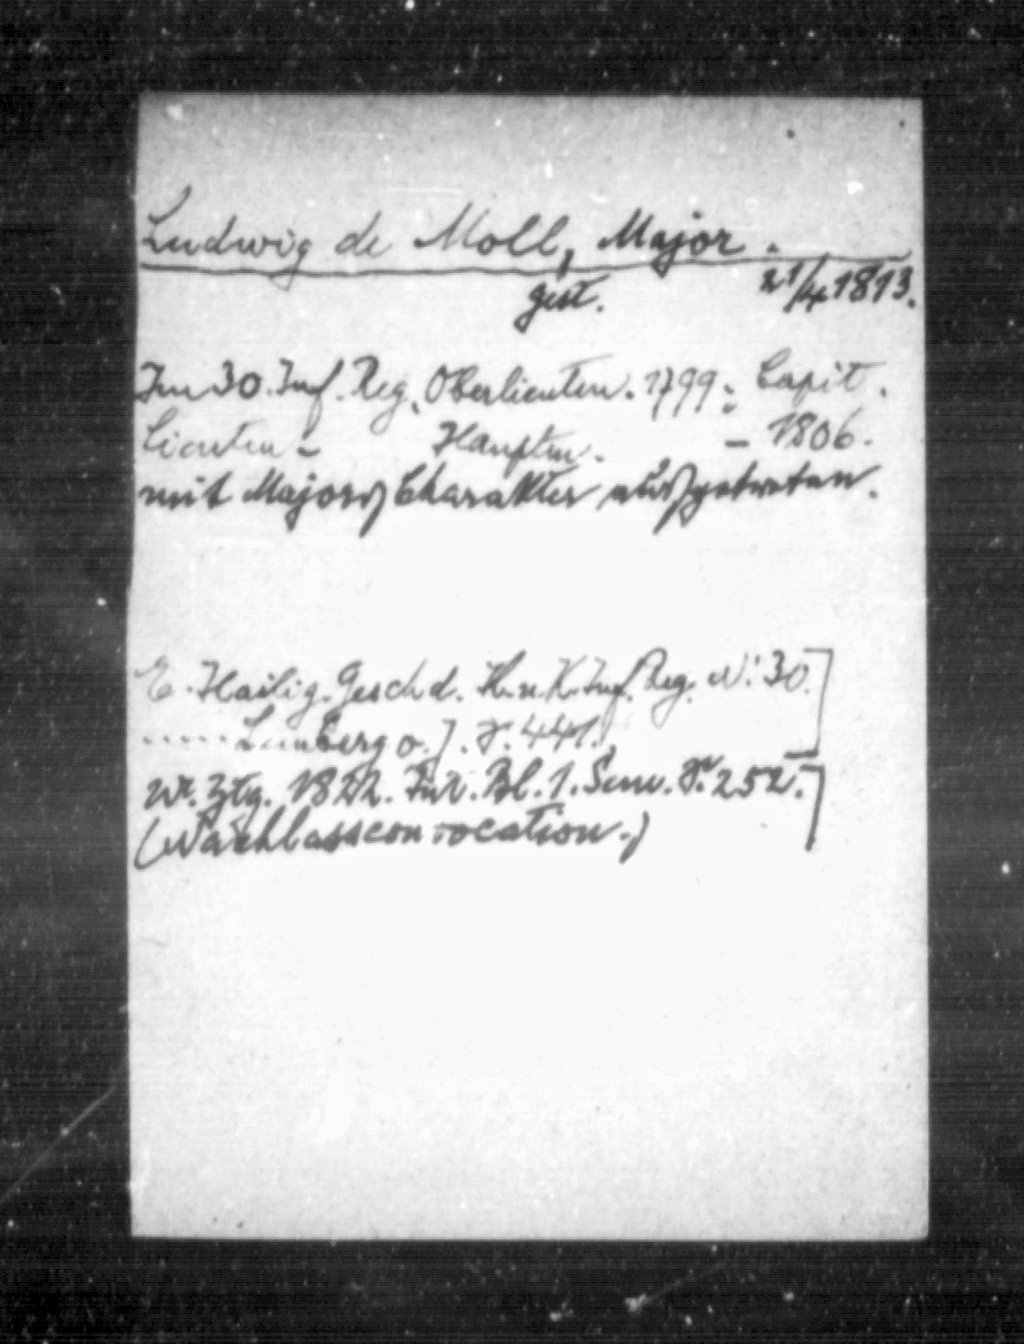 Ludwig de Moll, Major.
gest. 21/4 1813.
Im 30. Inf. Reg. Oberlieuten. 1799; Capit.
Lieuten – Hauptm. – 1806.
mit Majors Charakter ausgetreten.
E. Hailig. Gesch d. K. u. K. Inf. Reg. N: 30.
..... Lemberg o. J. S. 441.
Wr. Ztg. 1822. Int. Bl. 1. Sem. S. 252.
(Nachlassconvocation.)